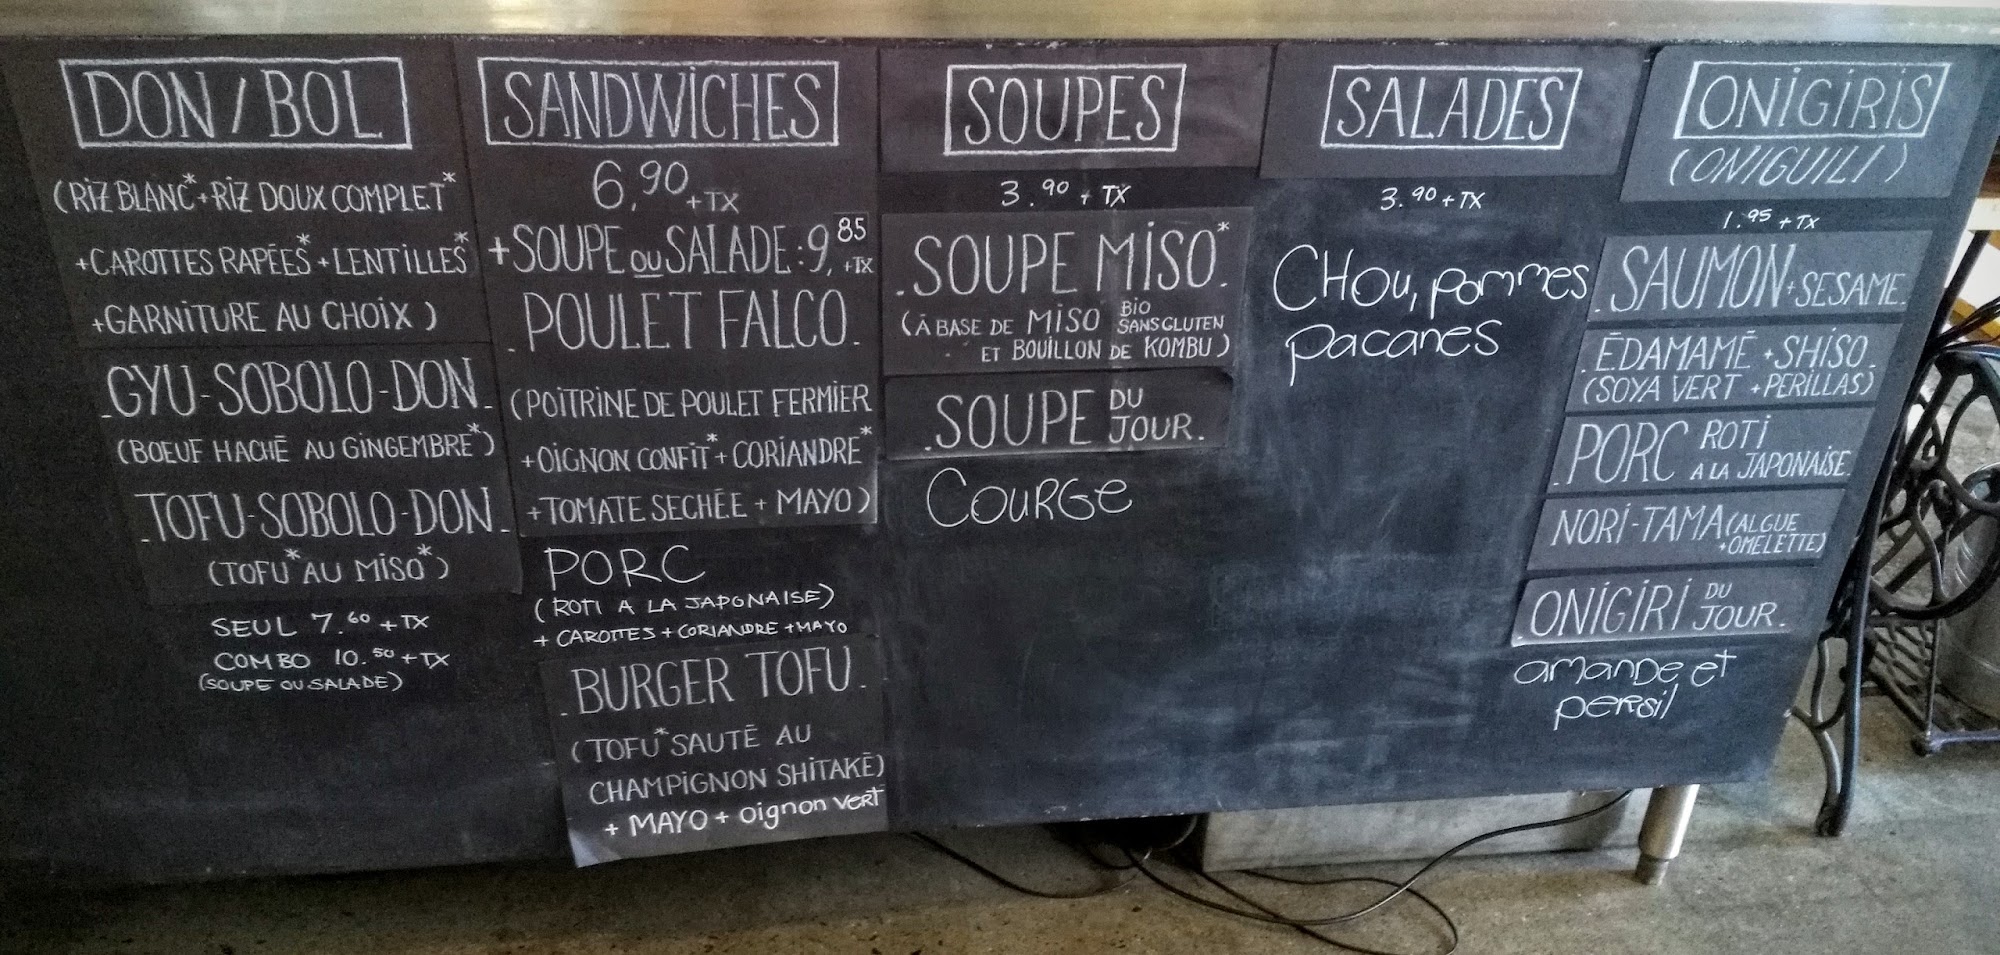 DON / BOL
(RIZ BLANC* + RIZ DOUX COMPLET*
+ CAROTTES RAPÉES* + LENTILLES*
+ GARNITURE AU CHOIX )
. GYU-SOBOLO-DON.
(BOEUF HACHÉ AU GINGEMBRE*)
. TOFU-SOBOLO-DON.
(TOFU* AU MISO*)
SEUL 7.60 + TX
COMBO 10.50 + TX
(SOUPE OU SALADE)
SANDWICHES
6,90 + TX
+ SOUPE OU SALADE : 9,85 + TX
. POULET FALCO.
(POITRINE DE POULET FERMIER
+ OIGNON CONFIT* + CORIANDRE*
+ TOMATE SECHÉE + MAYO)
PORC
( ROTI A LA JAPONAISE)
+ CAROTTES + CORIANDRE + MAYO
. BURGER TOFU.
(TOFU* SAUTÉ AU
CHAMPIGNON SHITAKÉ)
+ MAYO + oignon vert
SOUPES
3.90 + TX
. SOUPE MISO*.
(À BASE DE MISO BIO SANS GLUTEN
ET BOUILLON DE KOMBU)
. SOUPE DU JOUR.
COURGE
SALADES
3.90 + TX
CHOU, pommes
pacanes
ONIGIRIS
(ONIGUILI)
1.95 + TX
. SAUMON + SESAME.
. ÉDAMAMÉ + SHISO.
(SOYA VERT + PERILLAS)
. PORC ROTI A LA JAPONAISE.
NORI-TAMA (ALGUE
+ OMELETTE)
. ONIGIRI DU JOUR.
amande et
persil